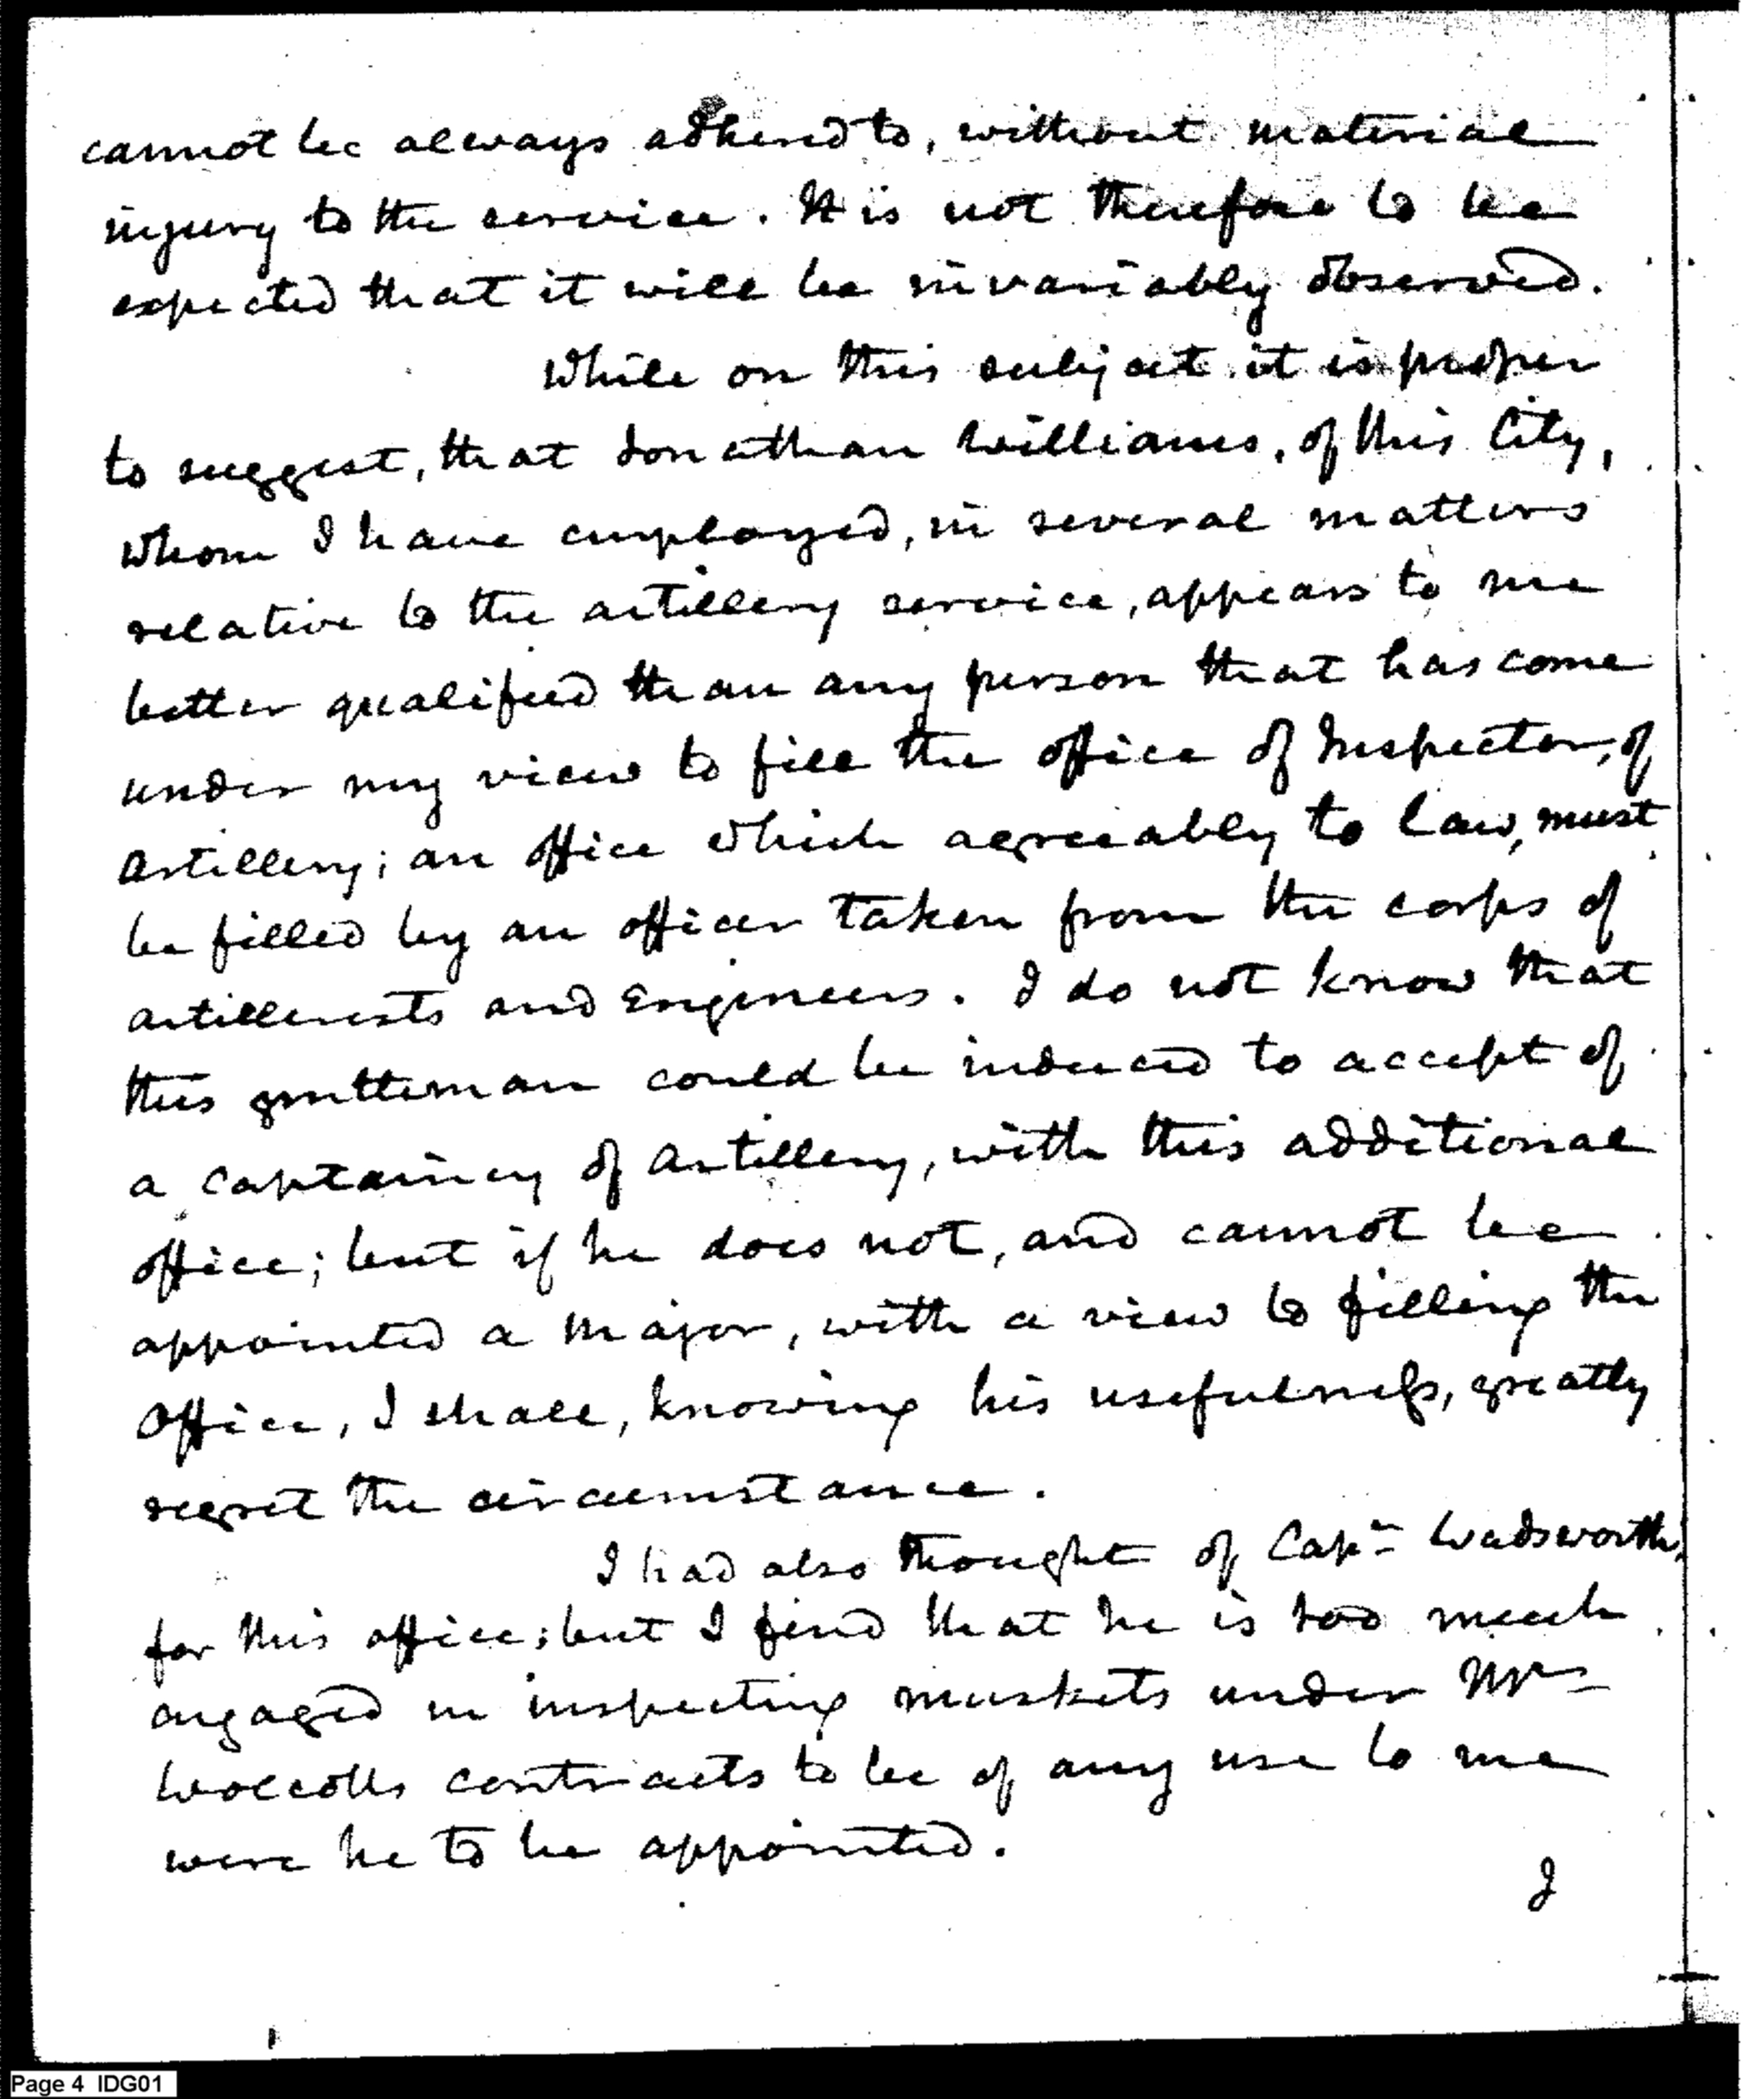 cannot be always adhered to, without material
injury to the service. It is not therefore to be
expected that it will be invariably observed.
While on this subject it is proper
to suggest, that Jonathan Williams, of this City,
whom I have employed, in several matters
relative to the artillery service, appears to me
better qualified than any person that has come
under my view to fill the office of Inspector, of
Artillery; an office which agreeably to law, must
be filled by an officer taken from the corps of
artillerists and Engineers. I do not know that
this gentleman could be induced to accept of
a captaincy of Artillery, with this additional
office; but if he does not, and cannot be
appointed a Major, with a view to filling the
Office, I shall, knowing his usefulness, greatly
regret the circumstance.
I had also thought of Capn Wadsworth,
for this office; but I find that he is too much
engaged in inspecting muskets under Mr
Wolcotts contracts to be of any use to me
were he to be appointed.
I
Page 4 IDG01